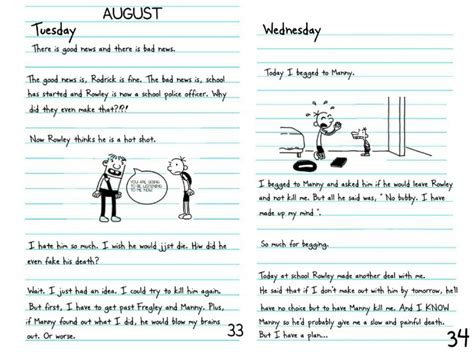 AUGUST
Tuesday
There is good news and there is bad news.
The good news is, Rodrick is fine. The bad news is, school
has started and Rowley is now a school police officer. Why
did they even make that?!?!
Now Rowley thinks he is a hot shot.
YOU ARE GOING
TO BE LISTENING
TO ME NOW
I hate him so much. I wish he would jjst die. How did he
even fake his death?
Wait. I just had an idea. I could try to kill him again.
But first, I have to get past Fregley and Manny. Plus,
if Manny found out what I did, he would blow my brains
out. Or worse.
33
Wednesday
Today I begged to Manny.
I begged to Manny and asked him if he would leave Rowley
and not kill me. But all he said was, "No bubby. I have
made up my mind".
So much for begging.
Today at school Rowley made another deal with me.
He said that if I don't make out with him by tomorrow, he'll
have no choice but to have Manny kill me. And I KNOW
Manny so he'd probably give me a slow and painful death.
But I have a plan...
34